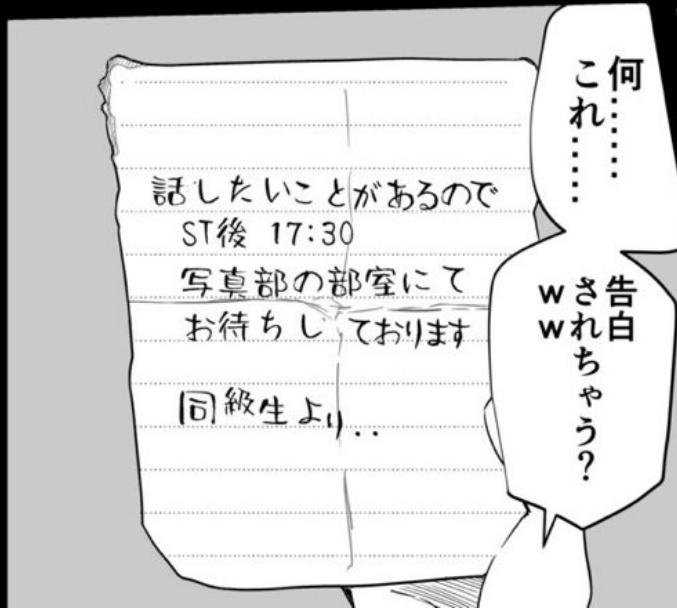 何……
これ……
告白
されちゃう?
ww
話したいことがあるので
ST後 17:30
写真部の部室にて
お待ちしております
同級生より..